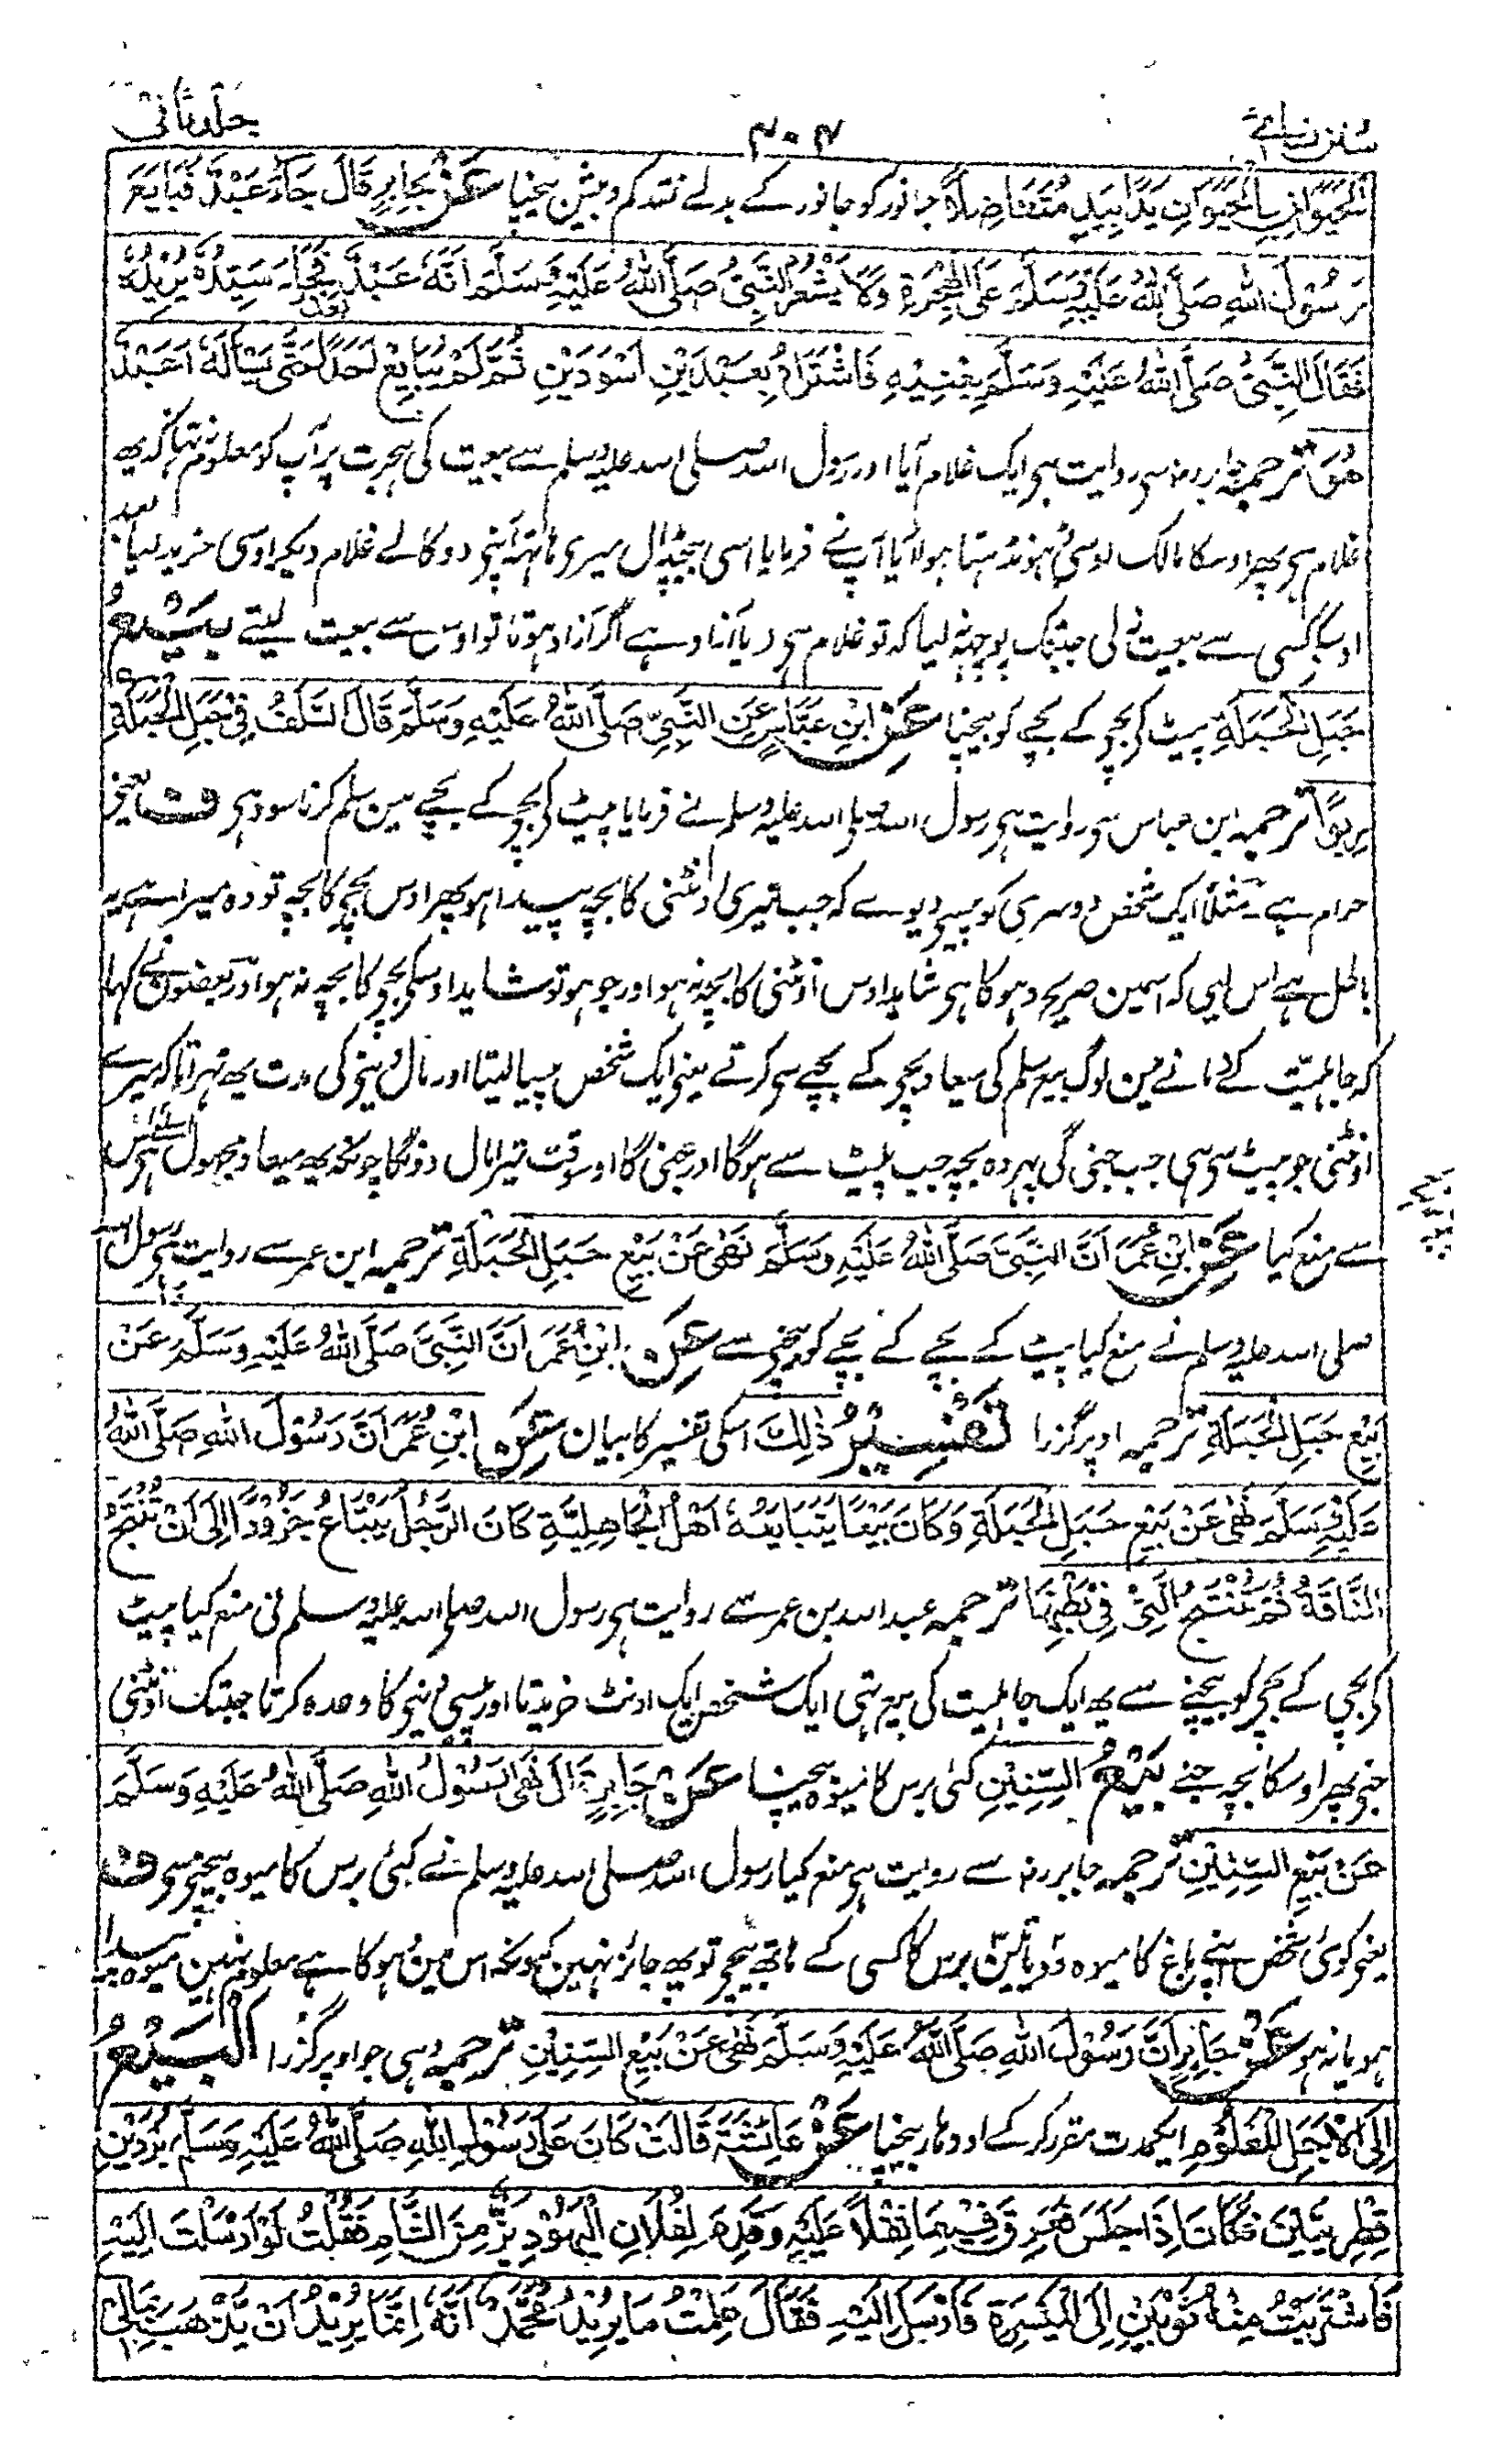 سنن نسائی
۴۰۴
جلد ثانی
الْحَيَوَانِ بِالْحَيَوَانِ يَدًا بِيَدٍ مُتَفَاضِلًا جانور کو جانور کے بدلے نقد کم و بیش بیچنا عَنْ جَابِرٍ قَالَ جَاءَ عَبْدٌ فَبَايَعَ
رَسُوْلَ اللهِ صَلَّى اللهُ عَلَيْهِ وَسَلَّمَ عَلَى الْهِجْرَةِ وَلَا يَشْعُرُ النَّبِيُّ صَلَّى اللهُ عَلَيْهِ وَسَلَّمَ اَنَّهُ عَبْدٌ فَجَاءَ سَيِّدُهُ يُرِيْدُهُ
فَقَالَ النَّبِيُّ صَلَّى اللهُ عَلَيْهِ وَسَلَّمَ بِعْنِيْهِ فَاشْتَرَاهُ بِعَبْدَيْنِ اَسْوَدَيْنِ ثُمَّ لَمْ يُبَايِعْ اَحَدًا حَتَّى يَسْأَلَهُ اَعَبْدٌ
هُوَ ترجمہ جابر رض سی روایت ہی ایک غلام آیا اور رسول اللہ صلی اللہ علیہ وسلم سے بیعت کی ہجرت پر آپ کو معلوم نہ تہا کہ یہ
غلام ہی پہر اوسکا مالک اوسی ڈہونڈہتا ہوا آیا آپ نے فرمایا اسی بیچ ڈال میری ہاتہہ آپنی دو کالے غلام دیکر اوسی خرید لیا بعد
اوسکے کسی سے بیعت نہ لی جبتک پوچہہ نہ لیا کہ تو غلام ہی یا آزاد ہے اگر آزاد ہوتا تو اوس سے بیعت لیتے بَيْعُ
حَبَلِ الْحَبَلَةِ پیٹ کی بچی کے بچے کو بیچنا عَنِ ابْنِ عَبَّاسٍ عَنِ النَّبِيِّ صَلَّى اللهُ عَلَيْهِ وَسَلَّمَ قَالَ السَّلَفُ فِيْ حَبَلِ الْحَبَلَةِ
رِبًا ترجمہ ابن عباس سی روایت ہی رسول اللہ صلی اللہ علیہ وسلم نے فرمایا پیٹ کی بچی کے بچے مین سلم کرنا سود ہی ف یعنی
حرام ہے مثلاً ایک شخص دوسری کو پیسی دیوے کہ جب تیری اونٹنی کا بچہ پیدا ہو پھر اوس بچی کا بچہ تو وہ میرا ہے یہ
باطل ہے اس لیی کہ اسمین صریح دہوکا ہی شاید اوس اونٹنی کا بچہ نہ ہو اور جو ہو تو شاید اوسکی بچی کا بچہ نہ ہو اور بعضون نے کہا
کہ جاہلیت کے زمانے مین لوگ بیع سلم کی میعاد بچی کے بچے سی کرتے یعنی ایک شخص پیسا لیتا اور مال دینی کی مدت یہ ٹہراتا کہ میری
اونٹنی جو پیٹ سی ہی جب جنی گی پہر وہ بچہ جب پیٹ سے ہوگا اور جنی گا اوسوقت تیرا مال دونگا چونکہ یہ میعاد مجہول ہی اسلیے اس
سے منع کیا عَنِ ابْنِ عُمَرَ اَنَّ النَّبِيَّ صَلَّى اللهُ عَلَيْهِ وَسَلَّمَ نَهٰى عَنْ بَيْعِ حَبَلِ الْحَبَلَةِ ترجمہ ابن عمر سے روایت ہی رسول اللہ
صلی اللہ علیہ وسلم نے منع کیا پیٹ کے بچے کے بچے کو بیچنی سے عَنِ ابْنِ عُمَرَ اَنَّ النَّبِيَّ صَلَّى اللهُ عَلَيْهِ وَسَلَّمَ عَنْ
بَيْعِ حَبَلِ الْحَبَلَةِ ترجمہ اوپر گزرا تَفْسِيْرُ ذٰلِكَ اسکی تفسیر کا بیان عَنِ ابْنِ عُمَرَ اَنَّ رَسُوْلَ اللهِ صَلَّى اللهُ
عَلَيْهِ وَسَلَّمَ نَهٰى عَنْ بَيْعِ حَبَلِ الْحَبَلَةِ وَكَانَ بَيْعًا يَتَبَايَعُهُ اَهْلُ الْجَاهِلِيَّةِ كَانَ الرَّجُلُ يَبْتَاعُ جَزُوْرًا اِلَى اَنْ تُنْتَجَ
النَّاقَةُ ثُمَّ تُنْتَجُ الَّتِيْ فِيْ بَطْنِهَا ترجمہ عبد اللہ بن عمر سے روایت ہی رسول اللہ صلی اللہ علیہ وسلم نی منع کیا پیٹ
کی بچی کے بچی کو بیچنے سے یہ ایک جاہلیت کی بیع تہی ایک شخص ایک اونٹ خریدتا اور پیسی دینی کا وعدہ کرتا جبتک اونٹنی
جنی پھر اوسکا بچہ جنے بَيْعُ السِّنِيْنِ کئی برس کا میوہ بیچنا عَنْ جَابِرٍ قَالَ نَهٰى رَسُوْلُ اللهِ صَلَّى اللهُ عَلَيْهِ وَسَلَّمَ
عَنْ بَيْعِ السِّنِيْنِ ترجمہ جابر رض سے روایت ہی منع کیا رسول اللہ صلی اللہ علیہ وسلم نے کئی برس کا میوہ بیچنی سی ف
یعنی کوئی شخص اپنے باغ کا میوہ دو یا تین برس کا کسی کے ہاتھ بیچی تو یہ جائز نہین کیونکہ اس مین دہوکا ہے معلوم نہین میوہ پیدا
ہو یا نہ ہو عَنْ جَابِرٍ اَنَّ رَسُوْلَ اللهِ صَلَّى اللهُ عَلَيْهِ وَسَلَّمَ نَهٰى عَنْ بَيْعِ السِّنِيْنِ ترجمہ وہی جو اوپر گزرا اَلْبَيْعُ
اِلَى الْاَجَلِ الْمَعْلُوْمِ ایک مدت مقرر کر کے اودہار بیچنا عَنْ عَائِشَةَ قَالَتْ كَانَ عَلَى رَسُوْلِ اللهِ صَلَّى اللهُ عَلَيْهِ وَسَلَّمَ بُرْدَيْنِ
قِطْرِيَّيْنِ فَكَانَ اِذَا جَلَسَ فَعَرِقَ فِيْهِمَا ثَقُلَا عَلَيْهِ وَقَدِمَ لِفُلَانٍ الْيَهُوْدِيِّ بَزٌّ مِنَ الشَّامِ فَقُلْتُ لَوْ اَرْسَلْتَ اِلَيْهِ
فَاشْتَرَيْتَ مِنْهُ ثَوْبَيْنِ اِلَى الْمَيْسَرَةِ فَاَرْسَلَ اِلَيْهِ فَقَالَ عَلِمْتُ مَا يُرِيْدُ مُحَمَّدٌ اَنَّهُ اِنَّمَا يُرِيْدُ اَنْ يَذْهَبَ بِمَالِيْ